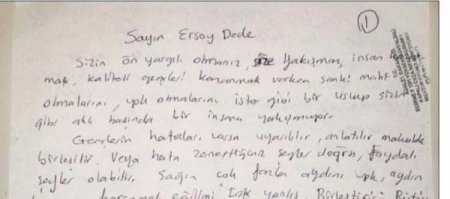 1
Sayın Ersoy Dede
Sizin ön yargılı olmanız, size yakışmaz, insan
mak, kaliteli gençleri kazanmak varken sanki mahf
olmalarını, yok olmalarını ister gibi bir uslup sizin
gibi aklı başında bir insana yakışmıyor.
Gençlerin hataları varsa uyarılır, anlatılır makulde
birleşilir. Veya hata zannettiğiniz şeyler doğru, faydalı
şeyler olabilir. Sağın çok fazla aydını yok, aydın
eğilimi çok yanlış